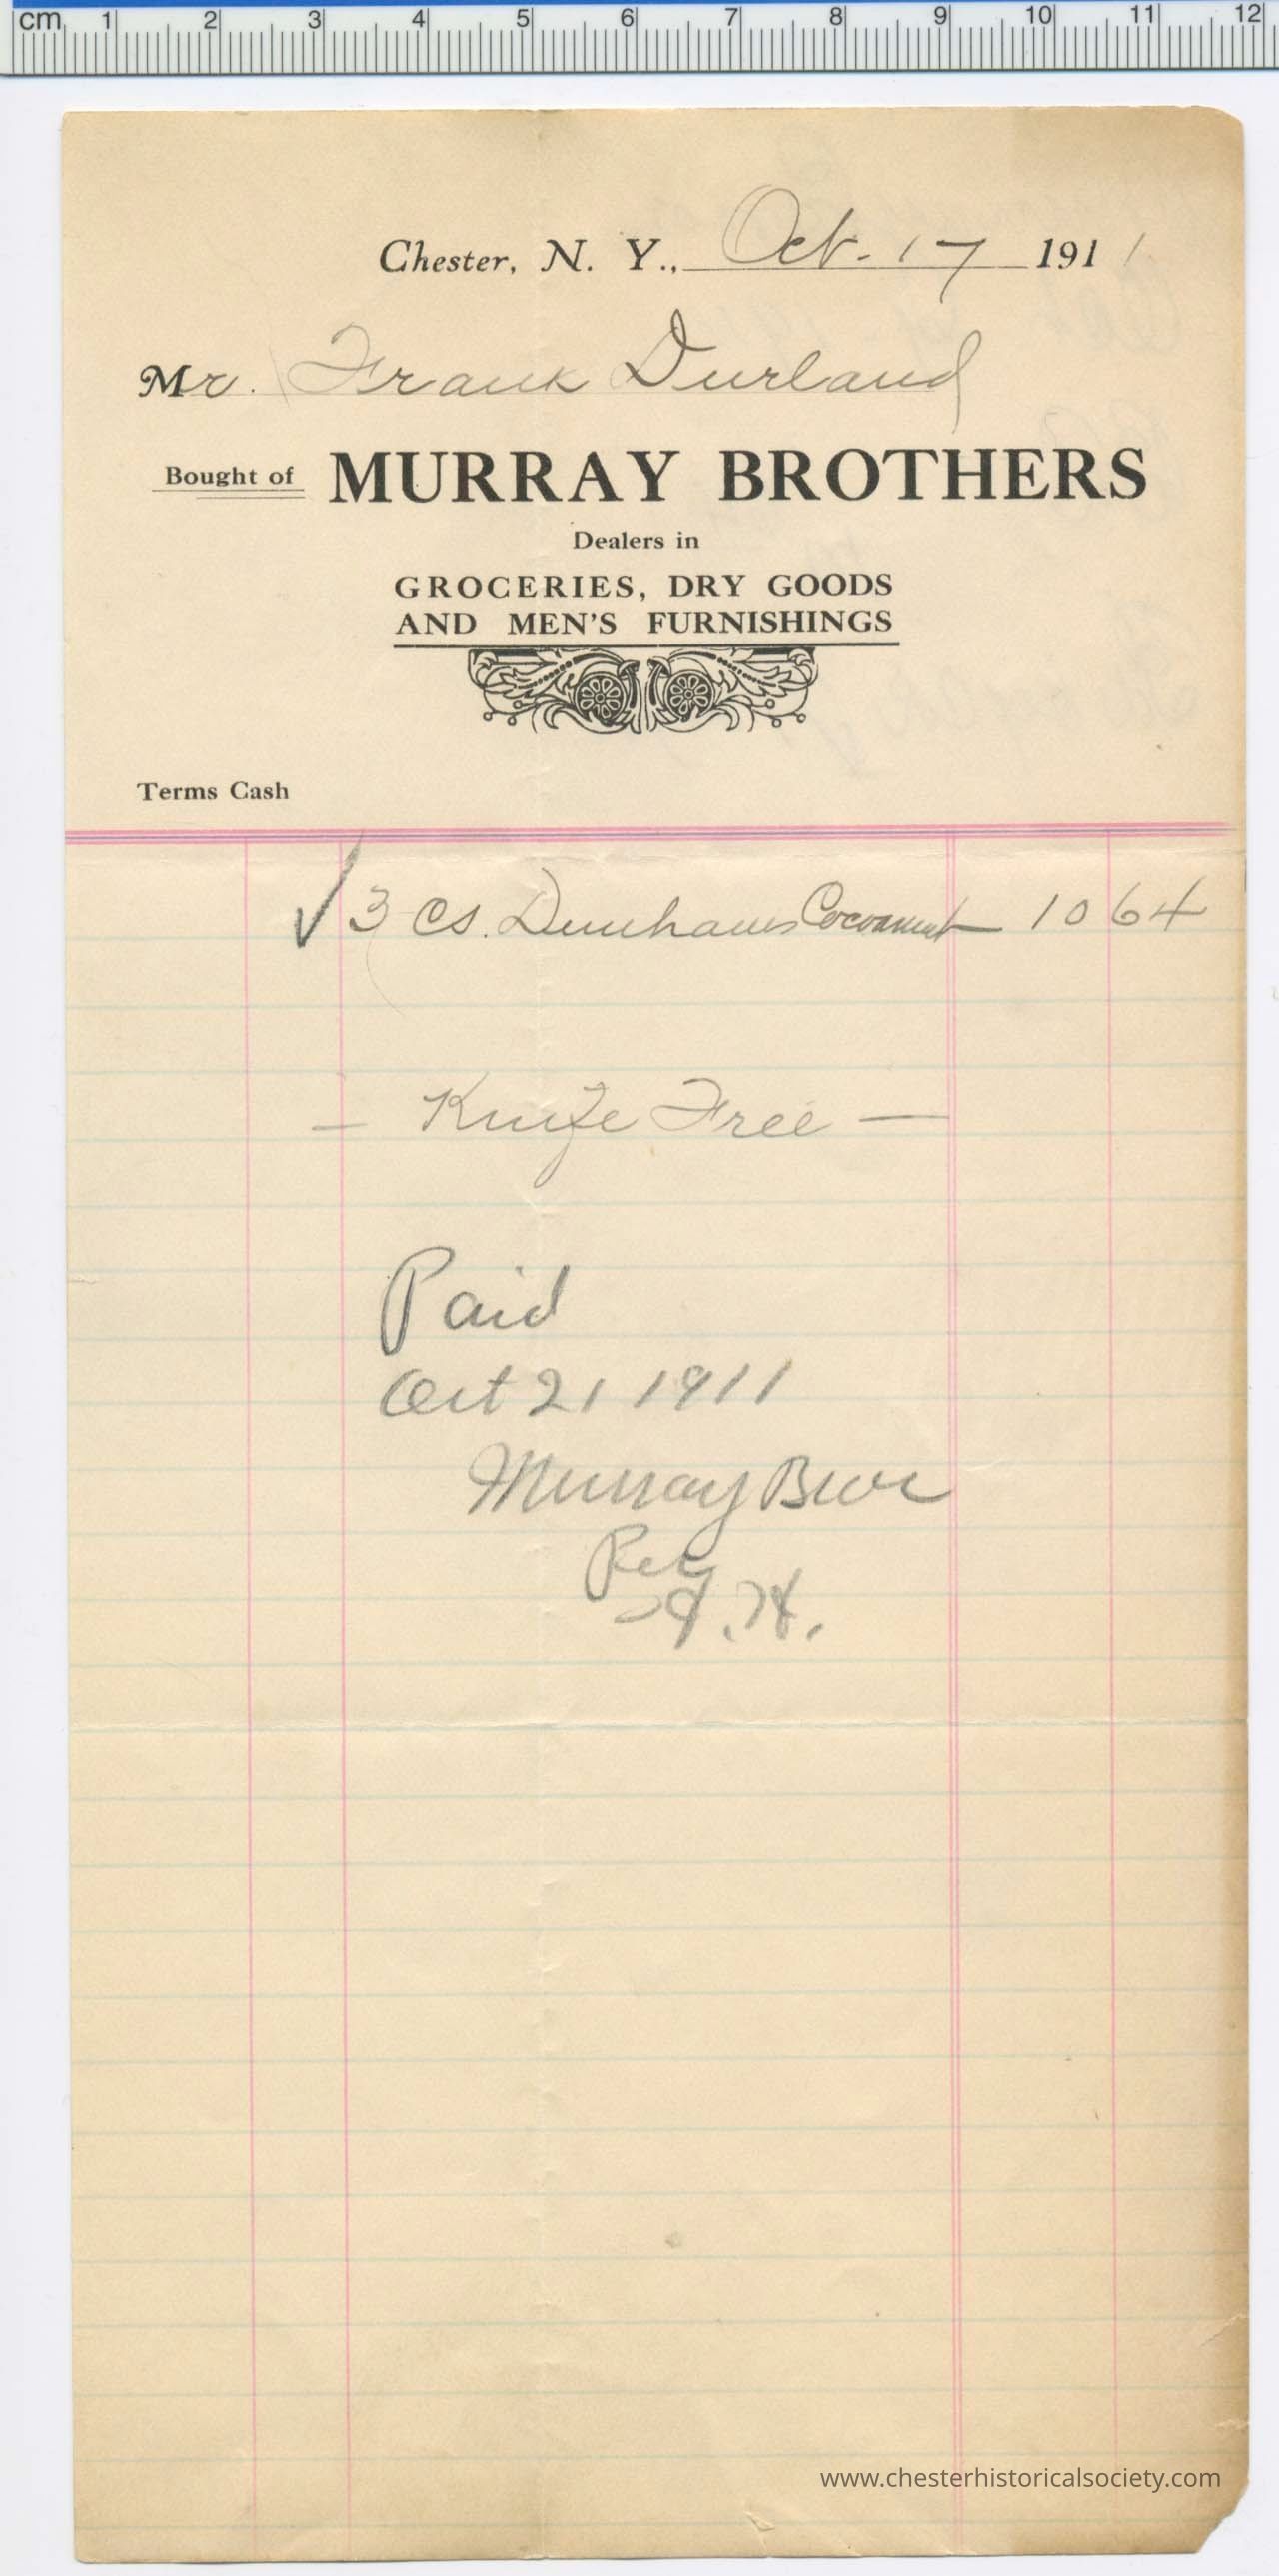 cm 1 2 3 4 5 6 7 8 9 10 11 12
Chester, N. Y., Oct. 17 1911
Mr. Frank Durland
Bought of MURRAY BROTHERS
Dealers in
GROCERIES, DRY GOODS
AND MEN'S FURNISHINGS
Terms Cash
✓ 3 cs. Dunhams Cocoanut 10 64
— Knife Free —
Paid
Oct 21 1911
Murray Bros
Per
H.
www.chesterhistoricalsociety.com